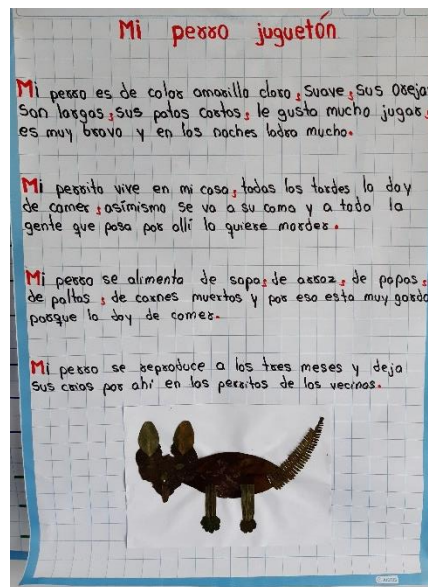 Mi perro juguetón
Mi perro es de color amarillo claro, suave, sus orejas
son largas, sus patas cortas, le gusta mucho jugar,
es muy bravo y en las noches ladra mucho.
Mi perrito vive en mi casa, todas las tardes la doy
de comer, asimismo se va a su cama y a toda la
gente que pasa por allí la quiere morder.
Mi perro se alimenta de sopa, de arroz, de papas,
de paltas, de carnes muertos y por eso esta muy gordo
porque la doy de comer.
Mi perro se reproduce a los tres meses y deja
sus crías por ahí en las perritas de los vecinos.